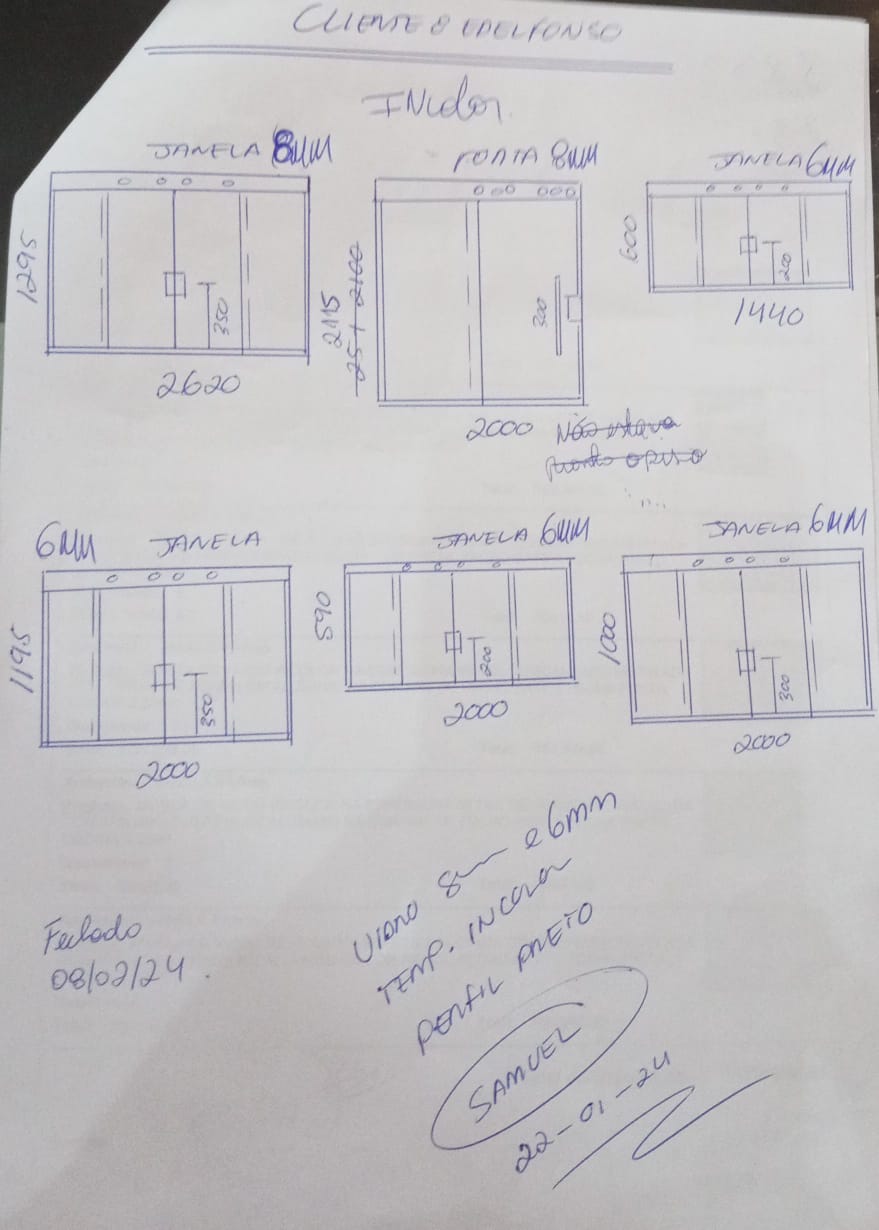 CLIENTE 8 EDELFONSO
INcolor
JANELA 8MM
1295
350
2620
PORTA 8MM
2115
25+ 2100
300
2000
Não estava
pronto o piso
JANELA 6MM
600
200
1440
6MM JANELA
1195
350
2000
JANELA 6MM
590
200
2000
JANELA 6MM
1000
300
2000
Fechado
08/02/24.
VIDRO 8mm e 6mm
TEMP. INCOLOR
PERFIL PRETO
SAMUEL
22-01-24